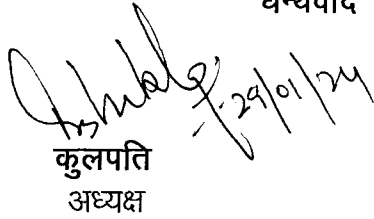 धन्यवाद
29/01/24
कुलपति
अध्यक्ष